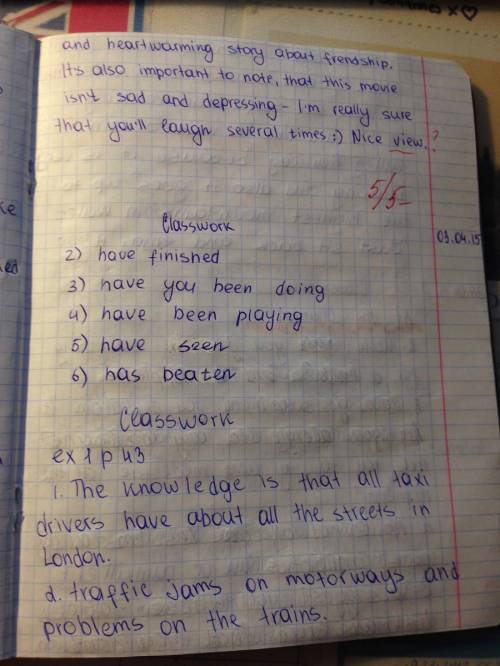 and heartwarming story about friendship.
It's also important to note, that this movie
isn't sad and depressing - I'm really sure
that you'll laugh several times :) Nice view. ?
5/5-
Classwork
03.04.15
2) have finished
3) have you been doing
4) have been playing
5) have seen
6) has beaten
Classwork
ex 1 p 43
1. The knowledge is that all taxi
drivers have about all the streets in
London.
2. traffic jams on motorways and
problems on the trains.